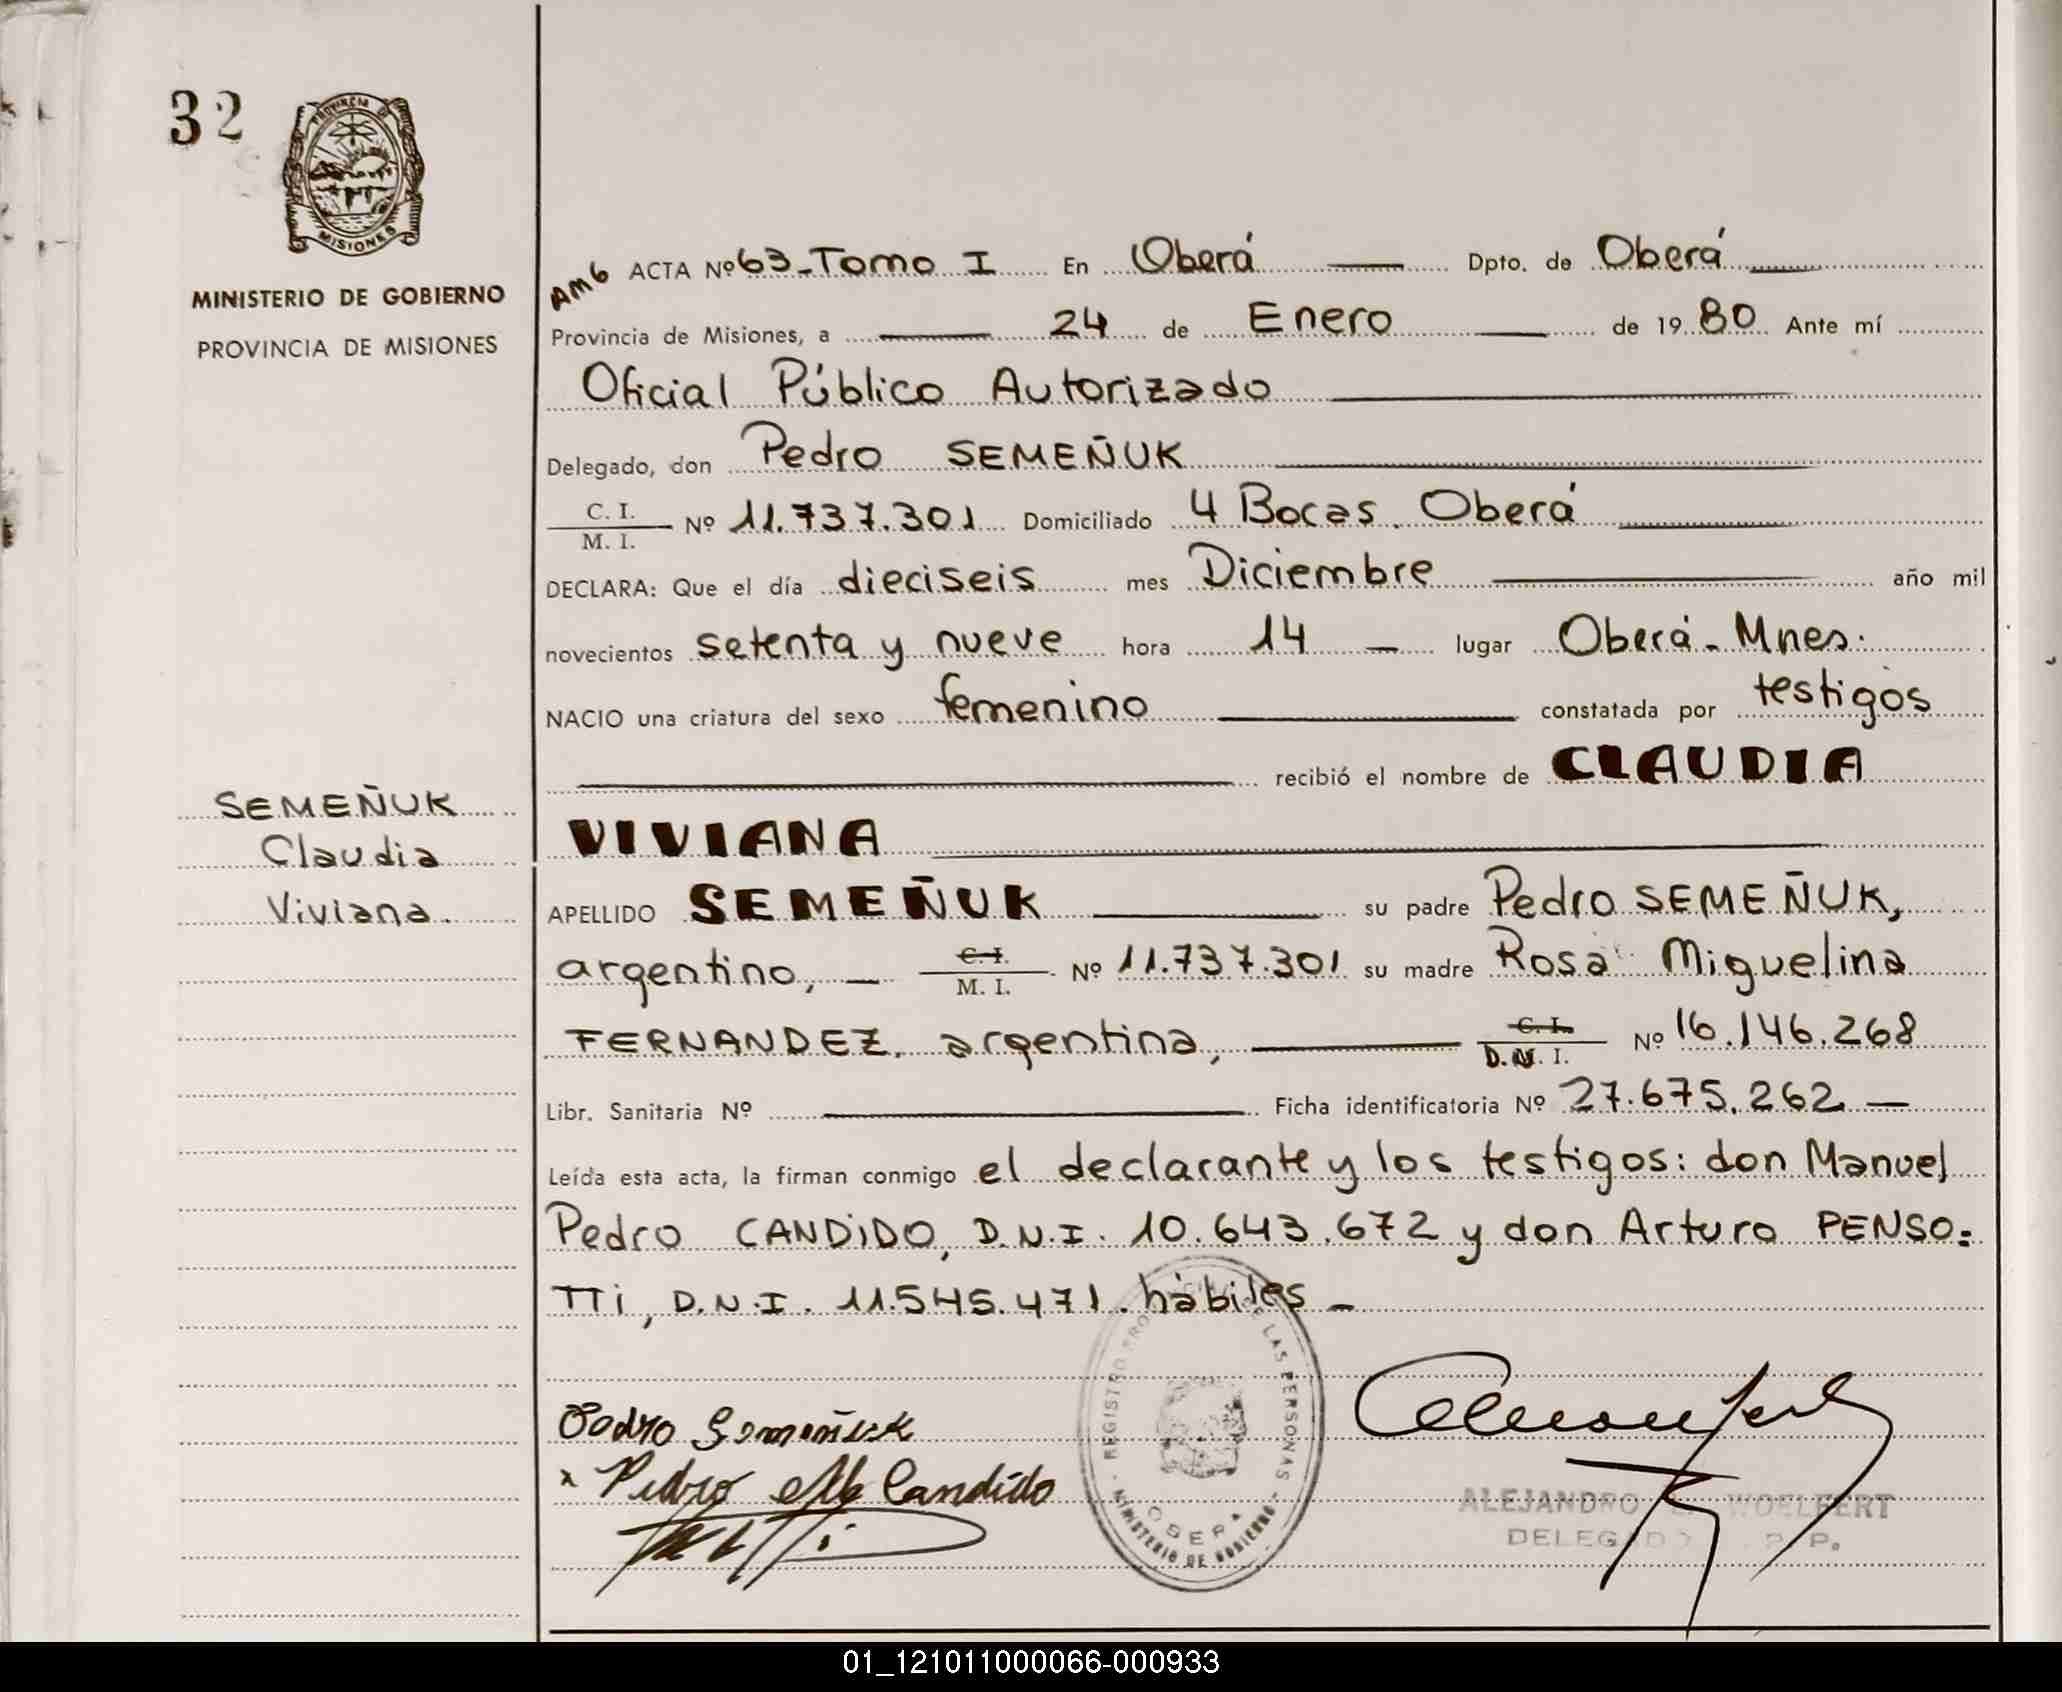 32
PROVINCIA DE
MISIONES
MINISTERIO DE GOBIERNO
PROVINCIA DE MISIONES
AM6 ACTA Nº 63-Tomo I En Oberá Dpto. de Oberá
Provincia de Misiones, a 24 de Enero de 1980 Ante mí
Oficial Público Autorizado
Delegado, don Pedro SEMEÑUK
C. I.
M. I. Nº 11.737.301 Domiciliado 4 Bocas. Oberá
DECLARA: Que el día dieciseis mes Diciembre año mil
novecientos setenta y nueve hora 14 — lugar Oberá-Mnes.
NACIO una criatura del sexo femenino constatada por testigos
recibió el nombre de CLAUDIA
VIVIANA
SEMEÑUK
Claudia
Viviana.
APELLIDO SEMEÑUK su padre Pedro SEMEÑUK,
argentino, — C. I.
M. I. Nº 11.737.301 su madre Rosa Miguelina
FERNANDEZ. argentina, C. I.
D.N. I. Nº 16.146.268
Libr. Sanitaria Nº Ficha identificatoria Nº 27.675.262 —
Leída esta acta, la firman conmigo el declarante y los testigos: don Manuel
Pedro CANDIDO, D.N.I. 10.643.672 y don Arturo PENSO=
TTi, D.N.I. 11.545.471. hábiles —
Pedro Semeñuk
x Pedro M. Candido
REGISTRO DE LAS PERSONAS
MINISTERIO DE GOBIERNO
OBERA
ALEJANDRO WOELFERT
DELEGADO R. P.
01_121011000066-000933